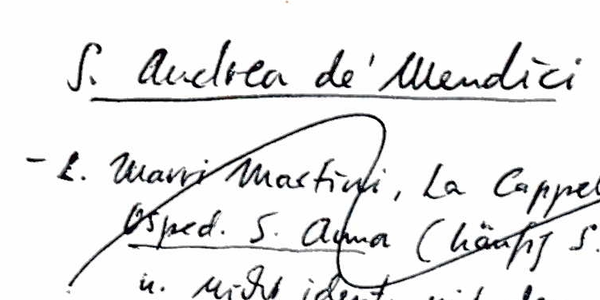 S. Andrea de' Mendici
- L. Marri Martini, La Cappel
Osped. S. Anna (häufig S.
u. nicht ident. mit